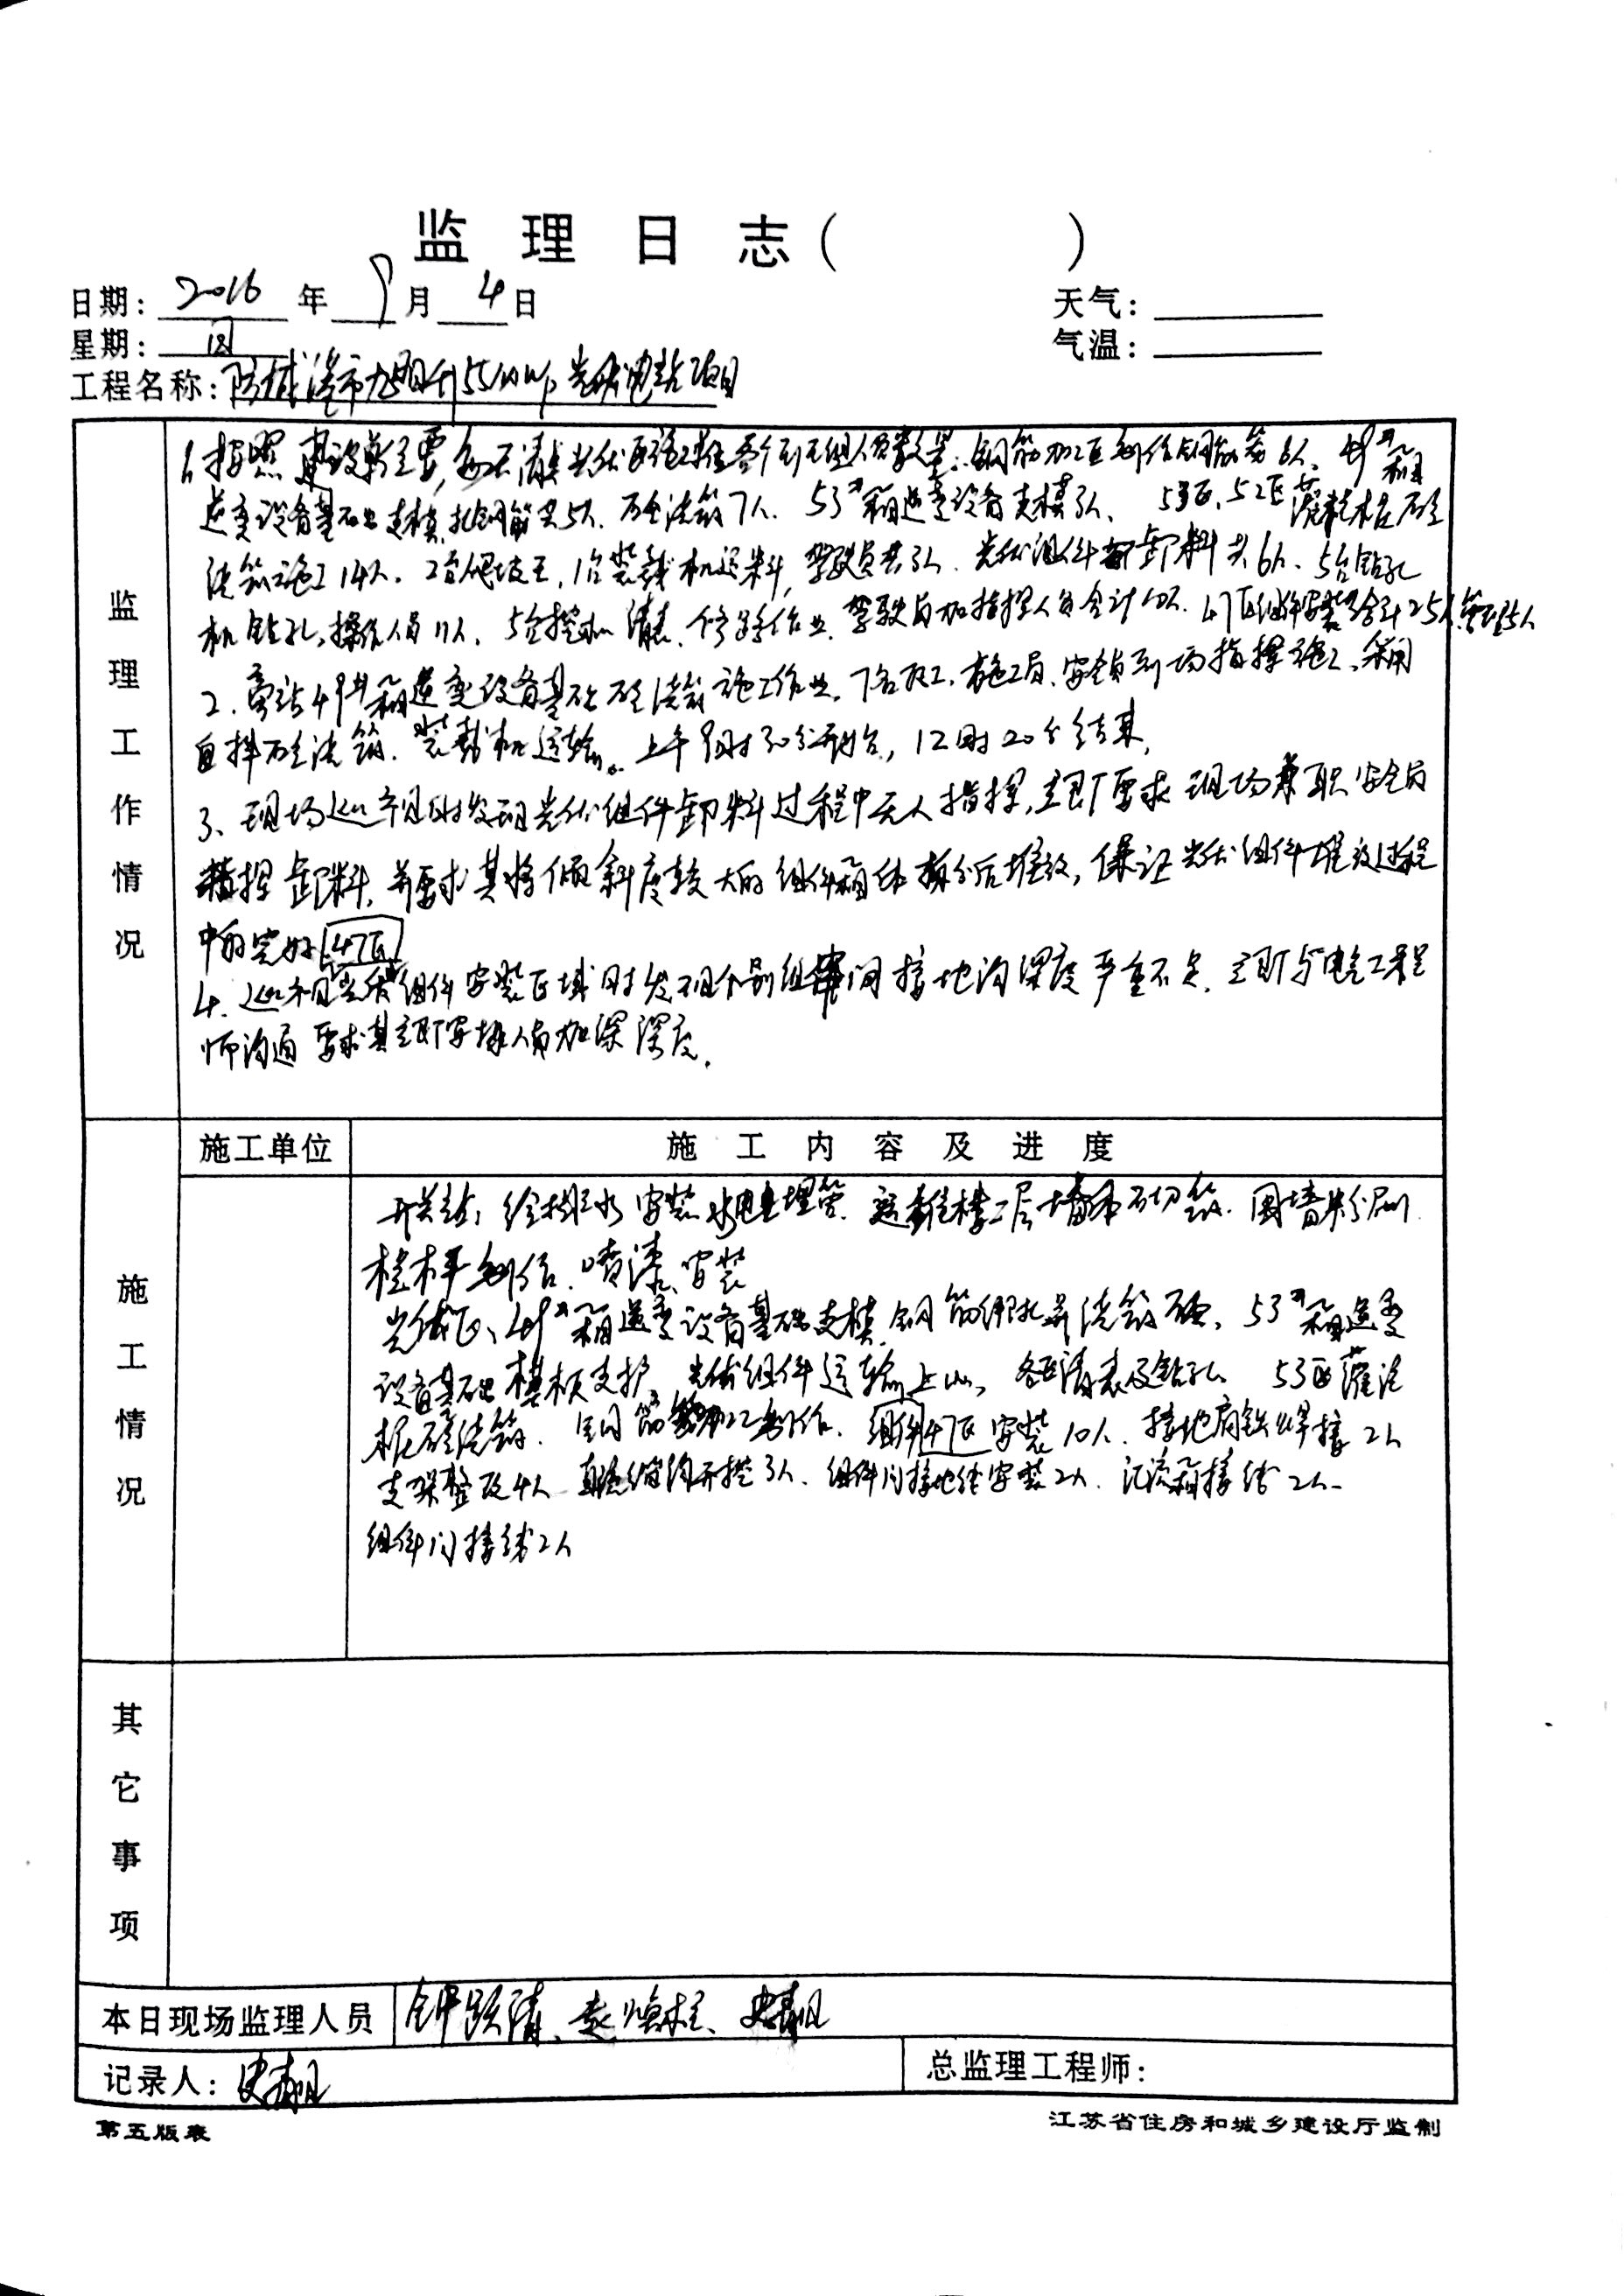 监理日志(    )
日期: 2016 年 9 月 4 日
天气:
星期: 四
气温:
工程名称: 防城港市 55MWp光伏电站项目
监理工作情况
1. 按照建设单位要 各个班组人员数量: 钢筋加工区制作钢筋笼6人、49#箱
逆变设备基础支模、扎钢筋共5人、砼浇筑7人、53#箱逆变设备支模3人、53区、52区灌注桩砼
浇筑施工14人、2台爬坡王,1台装载机运料,驾驶员共3人、光伏组件 卸料共6人、5台钻孔
机钻孔、操作人员11人、5台挖机清表、修路作业、驾驶员加指挥人员合计10人、47区组件安装合计25人、管理5人
2、旁站49#箱逆变设备基础砼浇筑施工作业、7名民工、施工员、安全员到场指挥施工、采用
自拌砼浇筑、装载机运输。上午9时30分开始,12时20分结束,
3、现场巡视时发现光伏组件卸料过程中无人指挥,立即要求现场兼职安全员
指挥卸料,并要求其将倾斜度较大的组件箱体拆分后堆放,保证光伏组件堆放过程
中的完好
4、巡视47区光伏组件安装区域时发现个别组串间接地沟深度严重不足、立即与电气工程
师沟通要求其立即安排人员加深深度.
施工情况
施工单位
施工内容及进度
开关站: 给排水安装水电预埋管、运维楼二层墙体砌筑、围墙粉刷
栏杆制作、喷漆、安装
光伏区、49#箱逆变设备基础支模、钢筋绑扎并浇筑砼、53#箱逆变
设备基础模板支护 光伏组件运输上山、各区清表及钻孔、53区灌注
桩砼浇筑、钢筋笼加工制作、组件47区安装10人、接地扁铁焊接2人
支架整改4人 直流缆沟开挖3人、组件间接地线安装2人、汇流箱接线2人、
组件间接线2人
其它事项
本日现场监理人员
记录人:
总监理工程师:
第五版表
江苏省住房和城乡建设厅监制